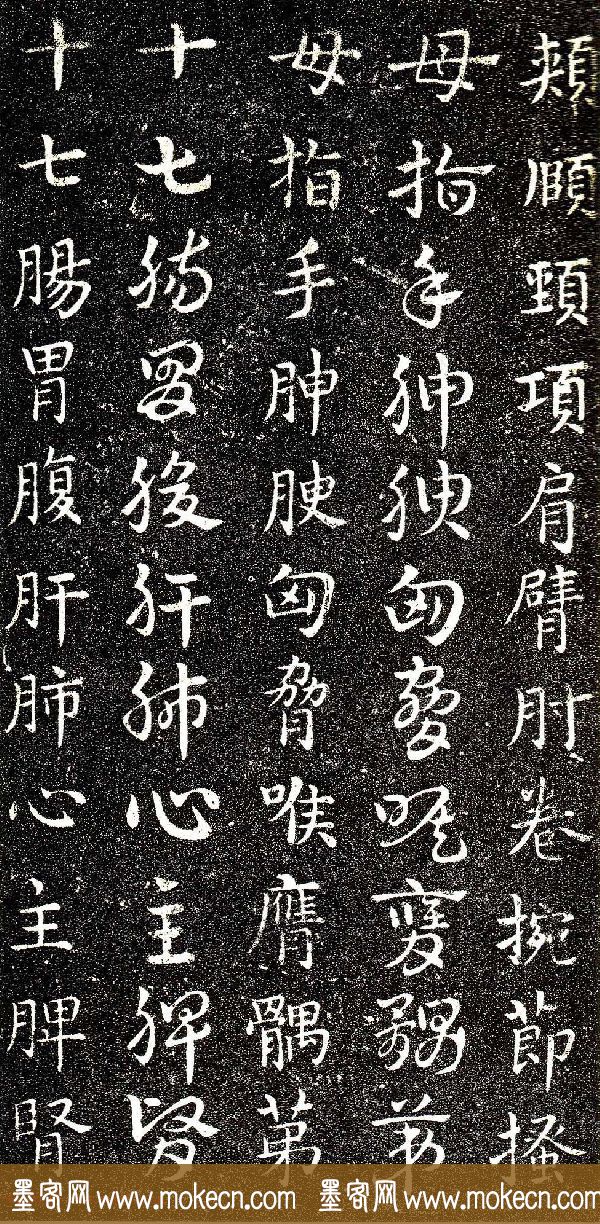 頰頤頸項肩臂肘卷捥節搔
母指手胂腴匈脅喉膺髃第
母指手胂腴匈脅喉膺髃第
十七腸胃腹肝肺心主脾腎
十七腸胃腹肝肺心主脾腎
墨客网 www.mokecn.com 墨客网 www.mokecn.com